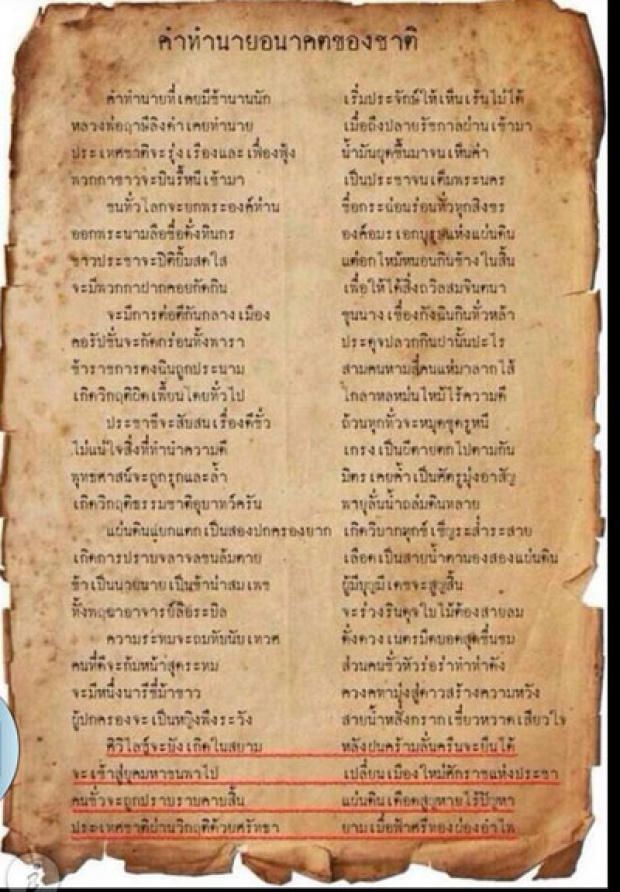 คำทำนายอนาคตของชาติ
คำทำนายที่เคยมีช้านานนัก เริ่มประจักษ์ให้เห็นเร้นไม่ได้
หลวงพ่อฤาษีลิงดำเคยทำนาย เมื่อถึงปลายรัชกาลย่านเข้ามา
ประเทศชาติจะรุ่งเรืองและเฟื่องฟุ้ง น้ำมันผุดขึ้นมาจนเห็นค่า
พวกกาขาวจะบินรี้หนีเข้ามา เป็นประชาจนเต็มพระนคร
ชนทั่วโลกจะยกพระองค์ท่าน ชื่อกระฉ่อนร่อนทั่วทุกสิงขร
ออกพระนามลือชื่อดั่งทินกร องค์อมรเอกบุรุษแห่งแผ่นดิน
ชาวประชาจะปิติยิ้มสดใส แต่อกไหม้หนอนกินข้างในสิ้น
จะมีพวกกาฝากคอยกัดกิน เพื่อให้ได้สิ่งถวิลสมจินตนา
จะมีการต่อตีกันกลางเมือง ขุนนางเขื่องกังฉินกินทั่วหล้า
คอรัปชั่นจะกัดกร่อนทั้งพารา ประดุจปลวกกินป่านั้นปะไร
ข้าราชการตงฉินถูกประนาม สามคนหามสี่คนแห่มาลากไส้
เกิดวิกฤติผิดเพี้ยนโดยทั่วไป โกลาหลหม่นไหม้ไร้ความดี
ประชาชีจะสับสนเรื่องดีชั่ว ถ้วนทุกทั่วจะหมุดขุดรูหนี
ไม่แน่ใจสิ่งที่ทำนำความดี เกรงเป็นผีตายตกไปตามกัน
พุทธศาสน์จะถูกรุกและล้ำ มิตรเคยค้ำเป็นศัตรูมุ่งอาสัญ
เกิดวิกฤติธรรมชาติอุบาทว์ครัน พายุลั่นน้ำถล่มดินหลาย
แผ่นดินแยกแตกเป็นสองปกครองยาก เกิดวิบากทุกข์เข็ญระส่ำระสาย
เกิดการปราบจลาจลชนล้มตาย เลือดเป็นสายน้ำตานองสองแผ่นดิน
ข้าเป็นนายนายเป็นข้าน่าสมเพช ผู้มีบุญมีเดชจะสูญสิ้น
ทั้งพฤฒาอาจารย์ลือระบิล จะร่วงรินดุจใบไม้ต้องสายลม
ความระทมจะถมทับนับเทวศ ดั่งดวงเนตรมืดบอดสุดขื่นขม
คนที่ดีจะก้มหน้าสุดระทม ส่วนคนชั่วหัวร่อร่าทำท่าดัง
จะมีหนึ่งนารีขี่ม้าขาว ควงคทามุ่งสู่ดาวสร้างความหวัง
ผู้ปกครองจะเป็นหญิงพึงระวัง สายน้ำหลั่งกรากเชี่ยวหวาดเสียวใจ
ศิวิไลซ์จะบังเกิดในสยาม หลังฝนคร้ามลั่นครืนจะยืนได้
จะเข้าสู่ยุคมหาชนพาไป เปลี่ยนเมืองใหม่ศักราชแห่งประชา
คนชั่วจะถูกปราบราบคาบสิ้น แผ่นดินเดือดสูญหายไร้ปัญหา
ประเทศชาติผ่านวิกฤติด้วยศรัทธา ยามเมื่อฟ้าศรีทองผ่องอำไพ